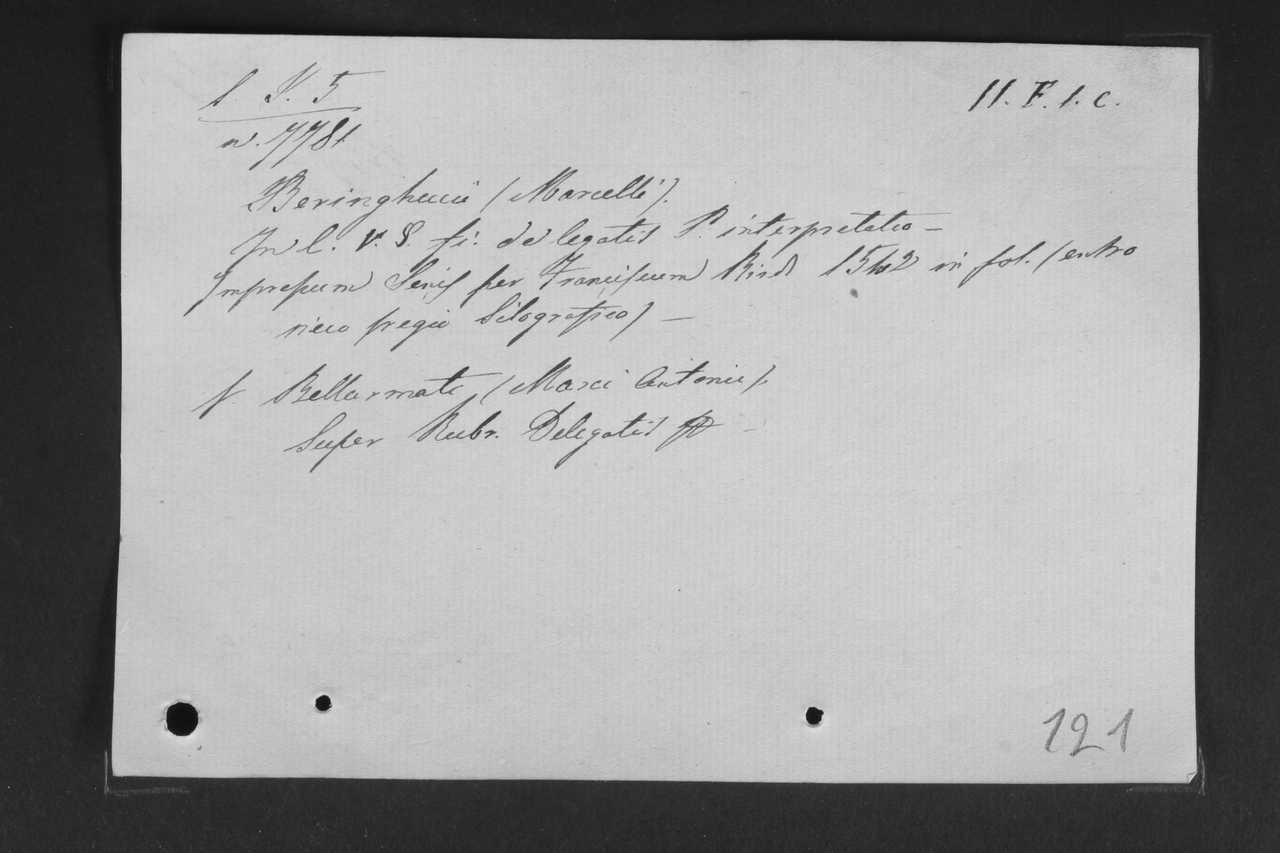 l. S. 5
n. 7781
11. F. 1. c.
Beringhucii (Marcelli).
In l. V. S. ff. de legatis P.ᵃ interpretatio —
Impressum Senis per Franciscum 1542 in fol. (entro
ricco fregio Silografico) —
f. Bellarmati (Marci Antonii).
Super Rubr. Delegatis
121